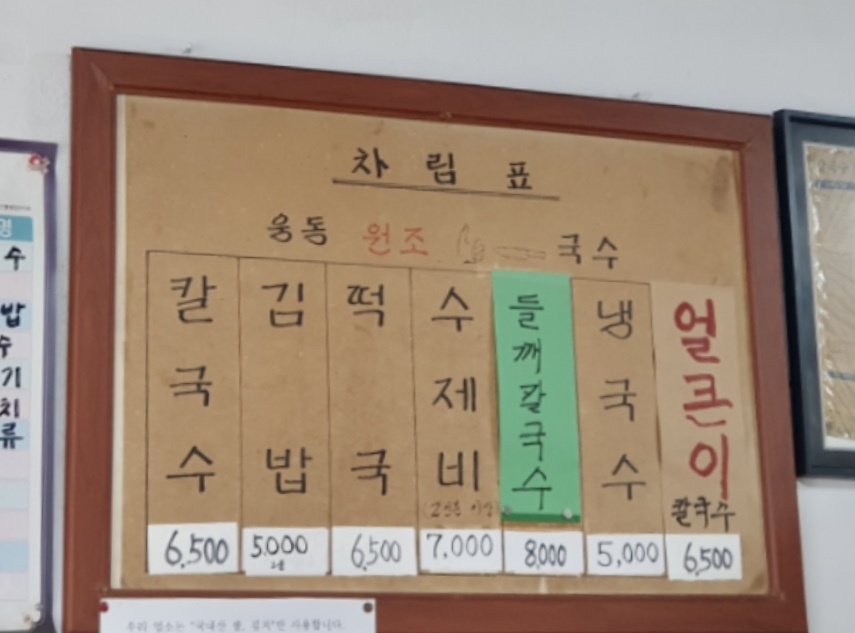 차림표
웅동 원조 국수
칼국수 6,500
김밥 5,000
떡국 6,500
수제비 7,000
들깨칼국수 8,000
냉국수 5,000
얼큰이 칼국수 6,500
우리 업소는 "국내산 쌀, 김치"만 사용합니다.
수
밥
수
기
치
류